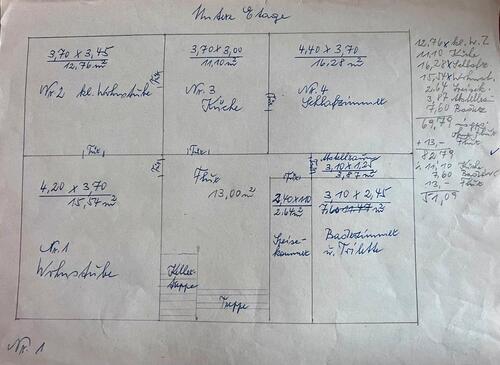 Untere Etage
3,70 x 3,45
12,76 m²
Nr. 2 kl. Wohnstube
Tür
3,70 x 3,00
11,10 m²
Nr. 3
Küche
Tür
4,40 x 3,70
16,28 m²
Nr. 4
Schlafzimmer
Tür
Tür
Tür
4,20 x 3,70
15,54 m²
Nr. 1
Wohnstube
Flur
13,00 m²
Keller-
treppe
Treppe
Tür
2,40 x 1,10
2,64 m²
Speise-
kammer
Abstellraum
3,10 x 1,25
3,87 m²
3,10 x 2,45
7,60 m²
Badezimmer
u. Toilette
12,76 x kl. W. Z
11,10 Küche
16,28 x Schlafz
15,54 x Wohnst.
2,64 Speisek.
3,87 Abstellr.
7,60 Badez.
69,79
+ 13,- Flur
82,79
11,10 Küche
7,60
13,- Flur
51,09
Nr. 1